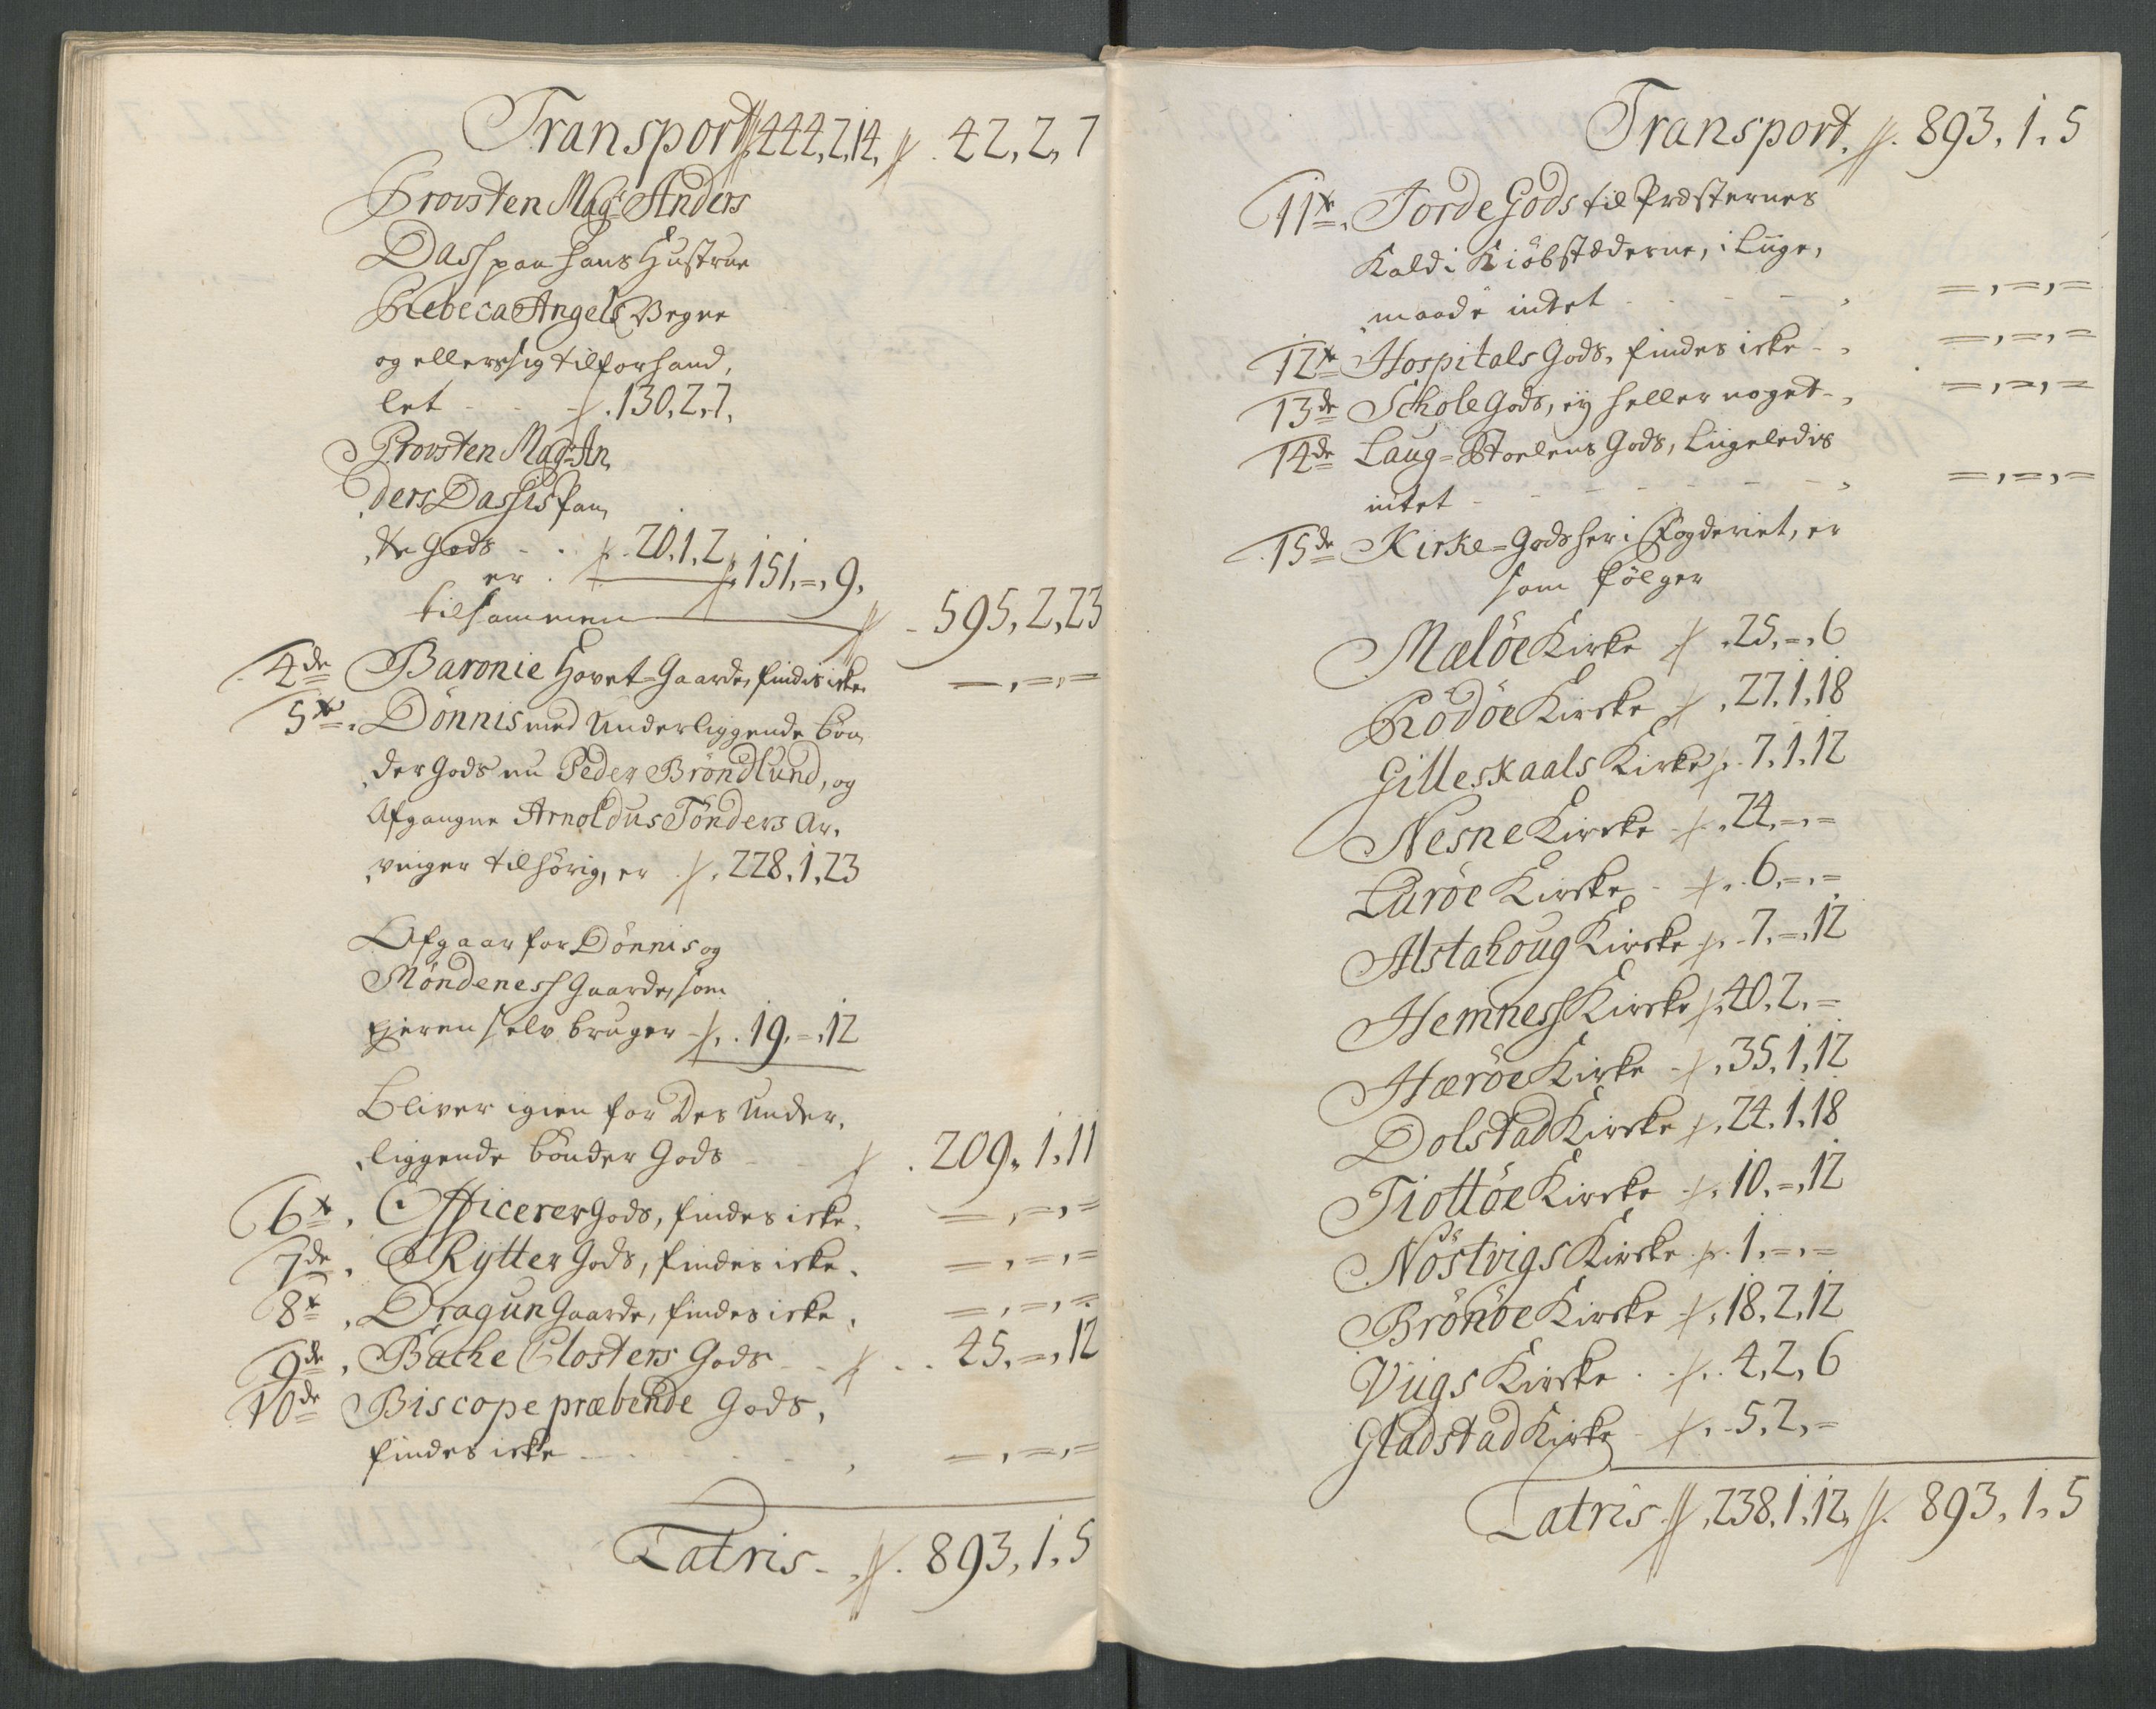 Transport 444,2,14, 42,2,7
Provsten Mag: Anders
Dass paa hans Hustrue
Rebeca Angels Vegne
og ellers sig tilforhand,
let - - 130,2,7,
Provsten Mag: An,
ders Dassis Pan,
te Gods - . 20,1,2
er . 151,=,9,
tilsammen 595,2,23
4de Baronie Hovet=Gaarde, findis icke, =,=,=
5te. Dönnis med Underliggende bøn,
der Gods nu Peder Bröndlund, og
Afgangne Arnoldus Tönders Ar,
vinger tilhörig, er . 228,1,23
Afgaar for Dönnis og
Möndeness Gaarde, som
Ejeren selv bruger - 19,=,12
Bliver igien for Des Under,
liggende bönder Gods - 209,1,11
6te, Officerer Gods, findes icke, =,=,=
7de, Rÿtter Gods, findes icke, =,=,=
8te, Dragun Gaarde, findes icke, =,=,=
9de, Bache Closters Gods - - 45,=,12
10de Biscope præbende Gods,
findes icke - - =,=,=
Latris - 893,1,5
Transport. 893,1,5
11te, Jorde Gods til Præsternes
Kald i Kiöbstæderne, i Liige,
maade intet - - - =,=,=
12te Hospitals Gods, findes icke - , =,=,=
13de Schole Gods, eÿ heller noget - , =,=,=
14de Laug=Stoelens Gods, Liigeledis
intet - - - =,=,=
15de Kirke=Gods her i Fogderiet, er
som fölger
Melöe Kirke 25,=,6
Rödöe Kircke 27,1,18
Gilleskaals Kirke 7,1,12
Nesne Kircke 24,=,=
Luröe Kircke - 6,=,=
Alstahoug Kircke 7,=,12
Hemness Kircke 40,2,=
Heröe Kirke - 35,1,12
Dolstad Kircke 24,1,18
Tiottöe Kircke 10,=,12
Nöstvigs Kircke 1,=,=
Brönöe Kircke 18,2,12
Viigs Kircke . 4,2,6
Gladstad Kirke - 5,2,=
Latris 238,1,12, 893,1,5